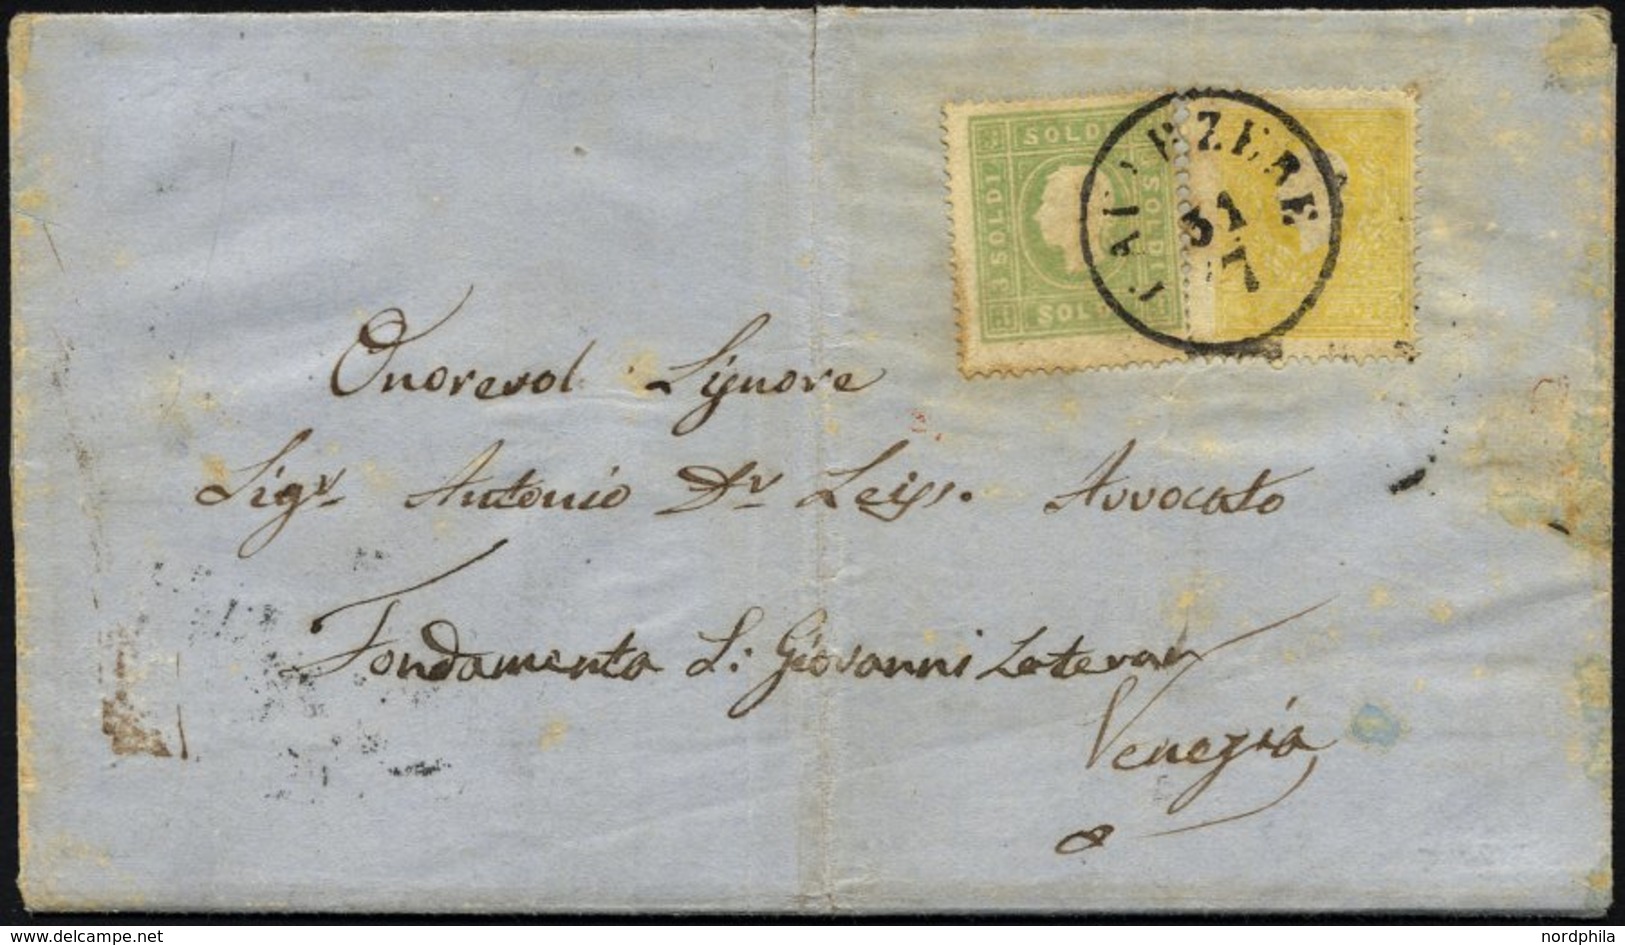 SOLDI
3 SOLDI
SOLDI
SOLDI
31
7
Onorevol Signore
Sigr Antonio Dr Avvocato
Fondamenta S: Giovanni Lateran
Venezia
© delcampe.net
nordphila